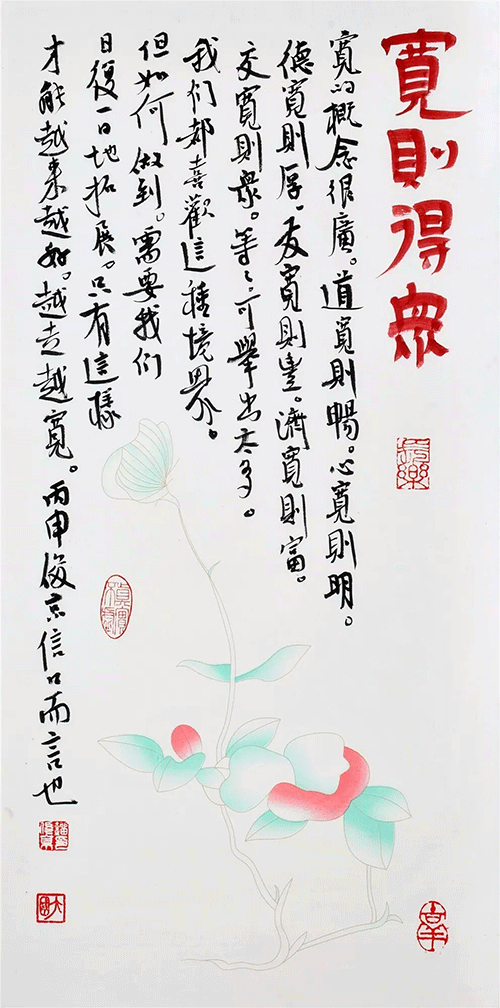 寬則得眾
寬的概念很廣。道寬則暢。心寬則明。
德寬則厚。友寬則豊。濟寬則富。
交寬則眾。等等可舉出太多。
我们都喜歡這種境界。
但如何做到。需要我们
日復一日地拓展。只有這樣
才能越来越好。越走越寬。丙申俊京信口而言也
長樂
大